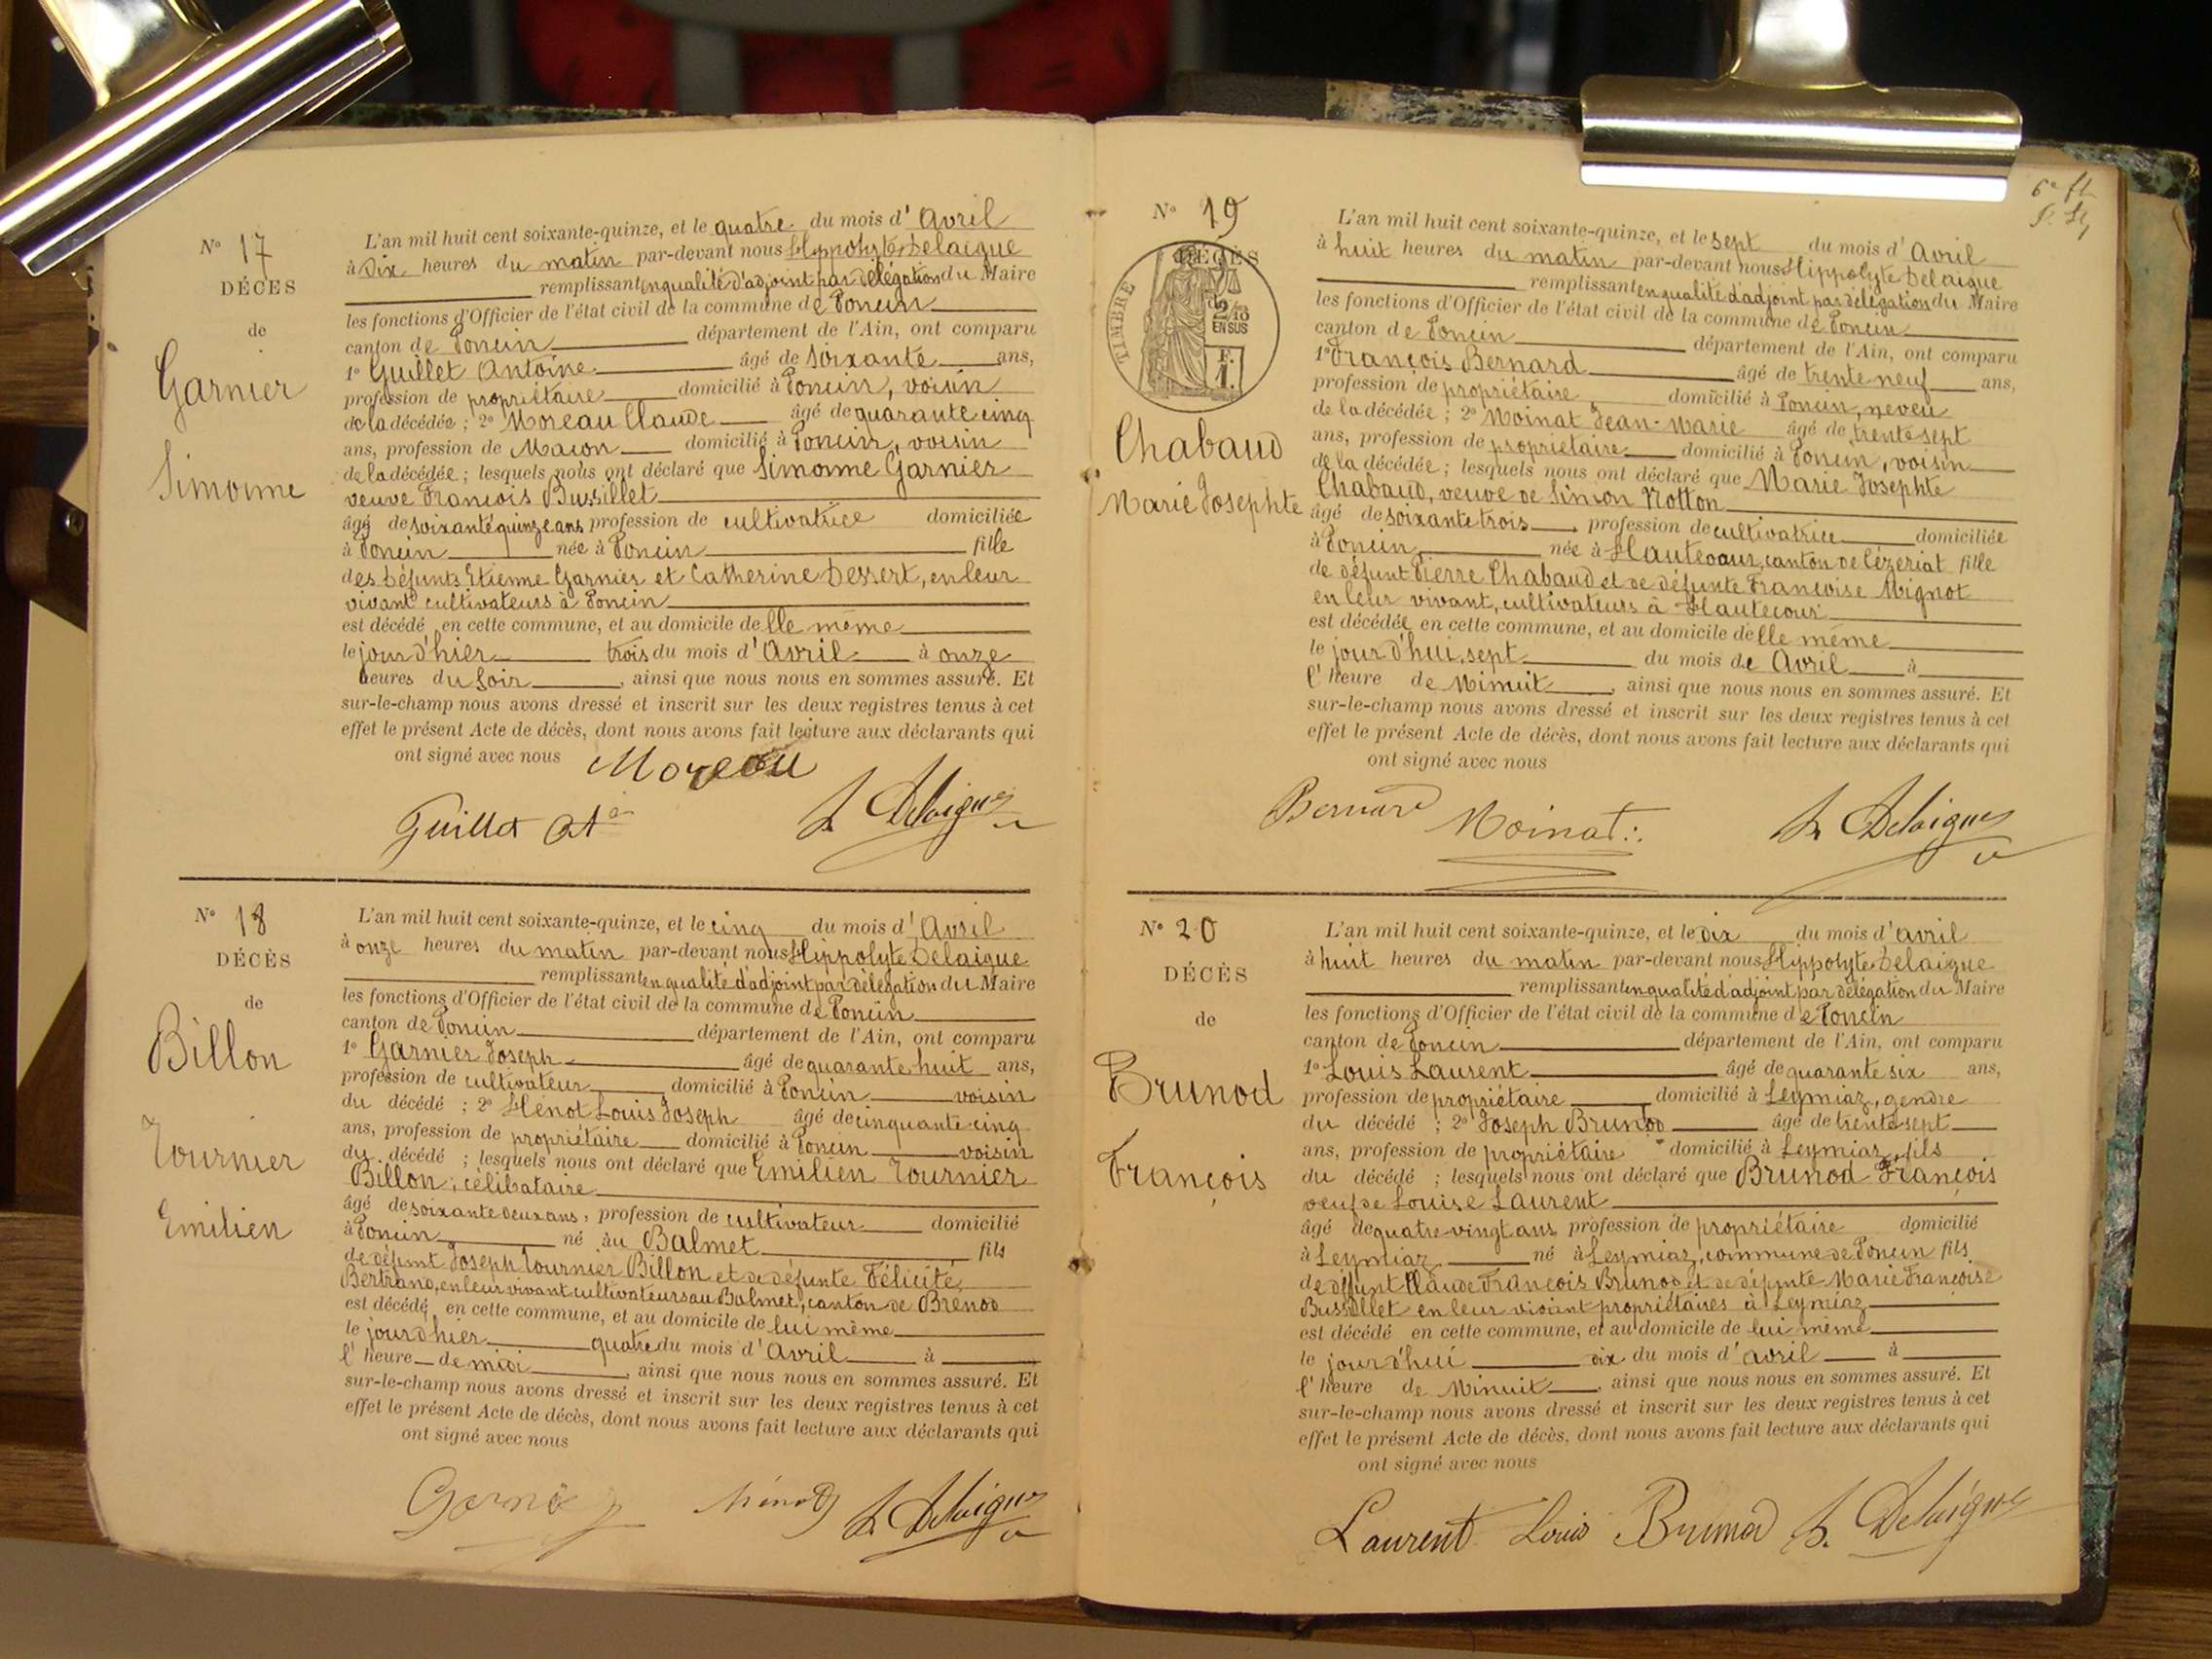 N° 17
DÉCÈS
de
Garnier
Simonne
L'an mil huit cent soixante-quinze, et le quatre du mois d'Avril
à Dix heures du matin par-devant nous Hippolyte Delaigue
remplissant en qualité d'adjoint par délégation du Maire
les fonctions d'Officier de l'état civil de la commune de Poncin
canton de Poncin département de l'Ain, ont comparu
1° Guillet Antoine âgé de soixante ans,
profession de propriétaire domicilié à Poncin, voisin
de la décédée ; 2° Moreau Claude âgé de quarante cinq
ans, profession de Maçon domicilié à Poncin, voisin
de la décédée ; lesquels nous ont déclaré que Simonne Garnier
veuve François Bussillet
âgé de soixante quinze ans profession de cultivatrice domiciliée
à Poncin née à Poncin fille
des défunts Etienne Garnier et Catherine Dessert, en leur
vivant cultivateurs à Poncin
est décédé en cette commune, et au domicile de lle même
le jour d'hier trois du mois d'Avril à onze
heures du soir, ainsi que nous nous en sommes assuré. Et
sur-le-champ nous avons dressé et inscrit sur les deux registres tenus à cet
effet le présent Acte de décès, dont nous avons fait lecture aux déclarants qui
ont signé avec nous
Moreau
Guillet At
h Delaigue
N° 18
DÉCÈS
de
Billon
Tournier
Emilien
L'an mil huit cent soixante-quinze, et le cinq du mois d'Avril
à onze heures du matin par-devant nous Hippolyte Delaigue
remplissant en qualité d'adjoint par délégation du Maire
les fonctions d'Officier de l'état civil de la commune de Poncin
canton de Poncin département de l'Ain, ont comparu
1° Garnier Joseph âgé de quarante huit ans,
profession de cultivateur domicilié à Poncin voisin
du décédé ; 2° Hénot Louis Joseph âgé de cinquante cinq
ans, profession de propriétaire domicilié à Poncin voisin
du décédé ; lesquels nous ont déclaré que Emilien Tournier
Billon, célibataire
âgé de soixante deux ans, profession de cultivateur domicilié
à Poncin né au Balmet fils
de défunt Joseph Tournier Billon et de défunte Félicité
Bertrand, en leur vivant cultivateurs au Balmet, canton de Brenod
est décédé en cette commune, et au domicile de lui même
le jour d'hier quatre du mois d'Avril à
l'heure de midi, ainsi que nous nous en sommes assuré. Et
sur-le-champ nous avons dressé et inscrit sur les deux registres tenus à cet
effet le présent Acte de décès, dont nous avons fait lecture aux déclarants qui
ont signé avec nous
Hénot
h Delaigue
N° 19
DÉCÈS
TIMBRE
2/10
EN SUS
F.
1.
Chabaud
Marie Josephte
L'an mil huit cent soixante-quinze, et le sept du mois d'Avril
à huit heures du matin par-devant nous Hippolyte Delaigue
remplissant en qualité d'adjoint par délégation du Maire
les fonctions d'Officier de l'état civil de la commune de Poncin
canton de Poncin département de l'Ain, ont comparu
1° François Bernard âgé de trente neuf ans,
profession de propriétaire domicilié à Poncin, neveu
de la décédée ; 2° Moinat Jean-Marie âgé de trente sept
ans, profession de propriétaire domicilié à Poncin, voisin
de la décédée ; lesquels nous ont déclaré que Marie Josephte
Chabaud, veuve de Simon Notton
âgé de soixante trois profession de cultivatrice domiciliée
à Poncin née à Hautecour, canton de Cézeriat fille
de défunt Pierre Chabaud et de défunte Françoise Mignot
en leur vivant, cultivateurs à Hautecour
est décédée en cette commune, et au domicile de lle même
le jour d'hui, sept du mois de Avril à
l'heure de Minuit, ainsi que nous nous en sommes assuré. Et
sur-le-champ nous avons dressé et inscrit sur les deux registres tenus à cet
effet le présent Acte de décès, dont nous avons fait lecture aux déclarants qui
ont signé avec nous
Bernard
Moinat
h Delaigue
N° 20
DÉCÈS
de
Brunod
François
L'an mil huit cent soixante-quinze, et le dix du mois d'avril
à huit heures du matin par-devant nous Hippolyte Delaigue
remplissant en qualité d'adjoint par délégation du Maire
les fonctions d'Officier de l'état civil de la commune de Poncin
canton de Poncin département de l'Ain, ont comparu
1° Louis Laurent âgé de quarante six ans,
profession de propriétaire domicilié à Leymiaz, gendre
du décédé ; 2° Joseph Brunod âgé de trente sept
ans, profession de propriétaire domicilié à Leymiaz, fils
du décédé ; lesquels nous ont déclaré que Brunod François
veuf de Louise Laurent
âgé de quatre-vingt ans profession de propriétaire domicilié
à Leymiaz né à Leymiaz, commune de Poncin fils
de défunt Claude François Brunod et de défunte Marie Françoise
Bussillet en leur vivant propriétaires à Leymiaz
est décédé en cette commune, et au domicile de lui même
le jour d'hui dix du mois d'avril à
l'heure de Minuit, ainsi que nous nous en sommes assuré. Et
sur-le-champ nous avons dressé et inscrit sur les deux registres tenus à cet
effet le présent Acte de décès, dont nous avons fait lecture aux déclarants qui
ont signé avec nous
Laurent Louis Brunod h. Delaigue